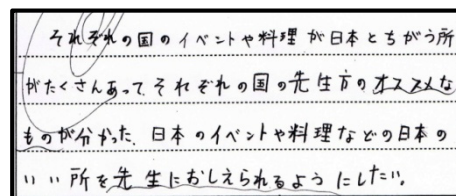 それぞれの国のイベントや料理が日本とちがう所
がたくさんあって、それぞれの国の先生方のオススメな
ものが分かった。日本のイベントや料理などの日本の
いい所を先生におしえられるようにしたい。